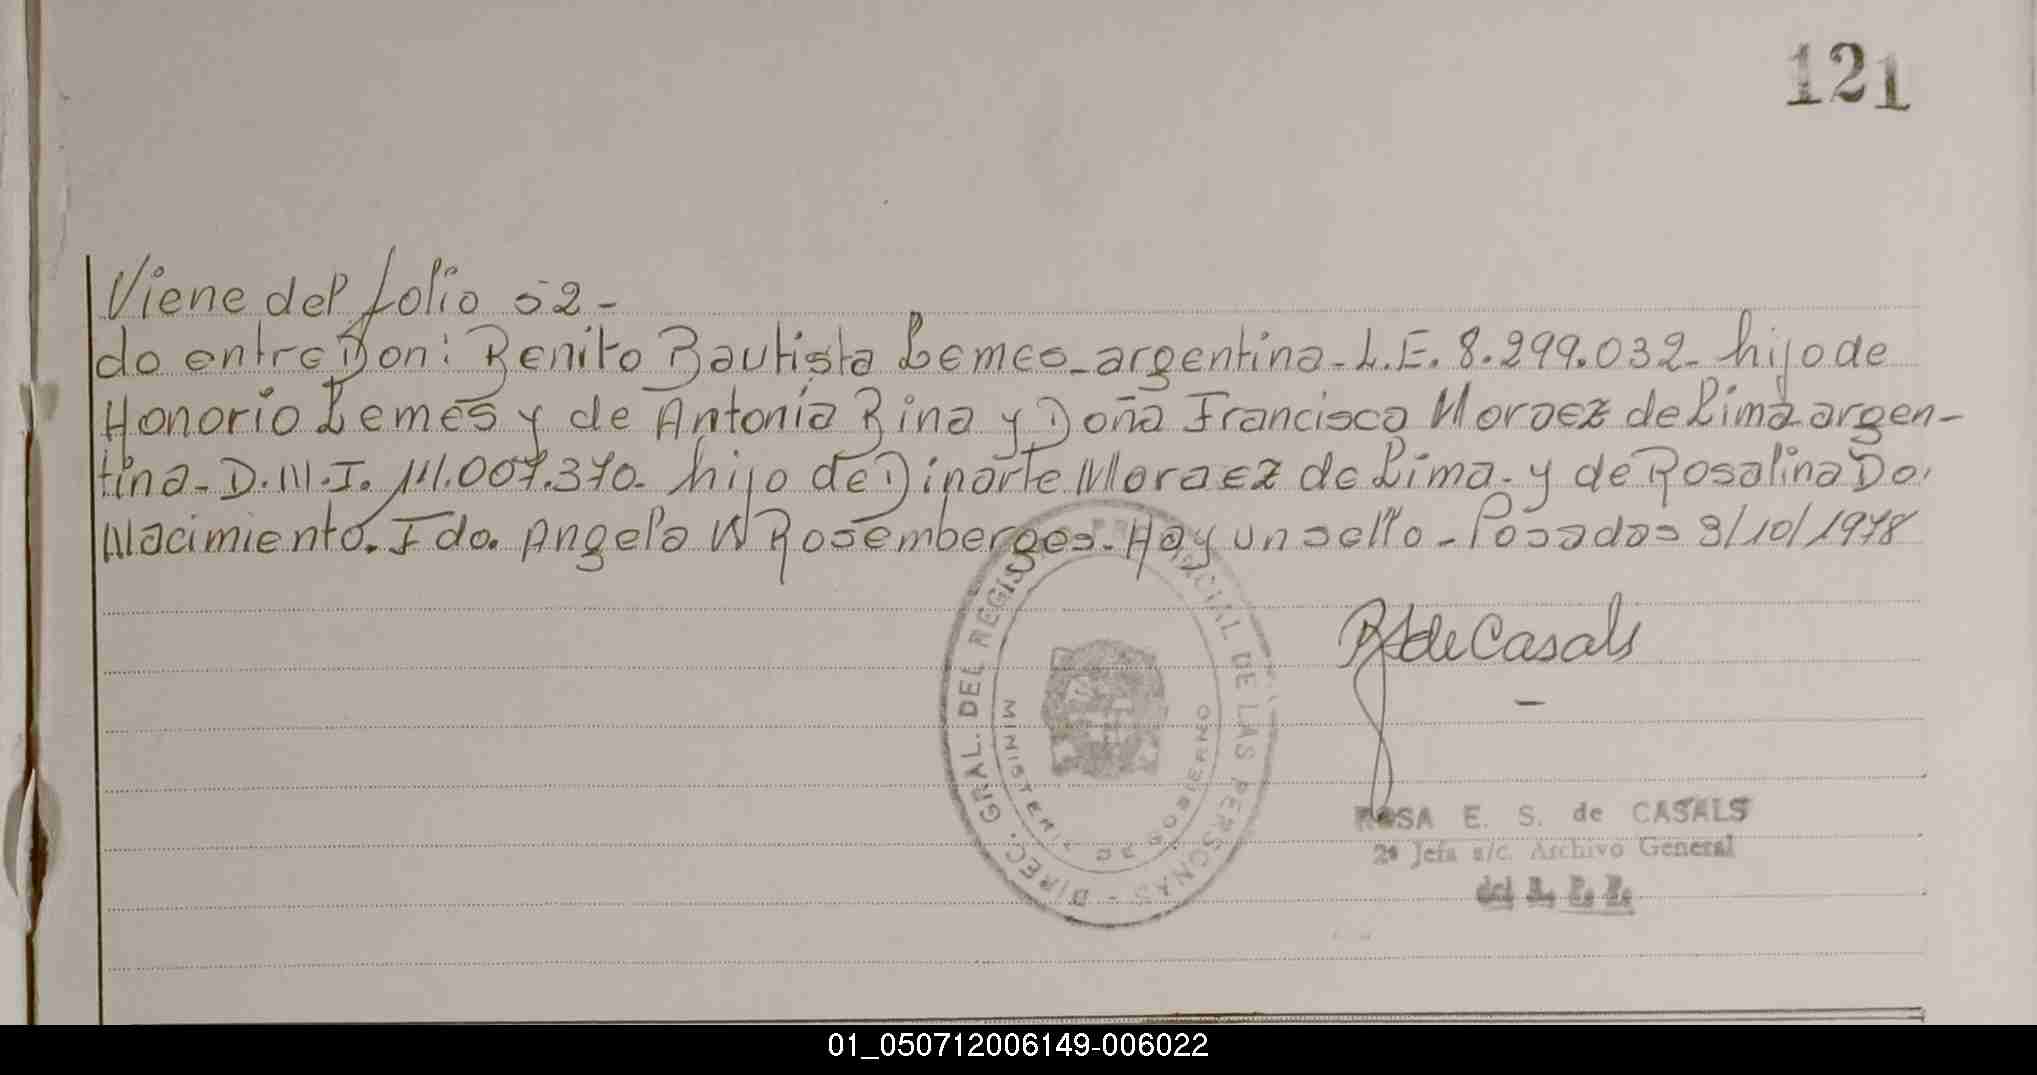 121
Viene del folio 52-
do entre Don: Benito Bautista Lemes-argentina-L.E. 8.299.032- hijo de
Honorio Lemes y de Antonia Bina y Doña Francisca Moraez de Lima argen-
tina-D.N.I. hijo de Dinarte Moraez de Lima-y de Rosalina Do.
Nacimiento. Fdo. Angela W Rosemberges-Hay un sello-Posadas 3/10/1978
RS de Casals
DIREC. GRAL. DEL REGIS PROVINCIAL DE LAS PERSONAS -
MINISTERIO DE GOBIERNO
ROSA E. S. de CASALS
2ª Jefa a/c. Archivo General
del R. P. P.
01_050712006149-006022